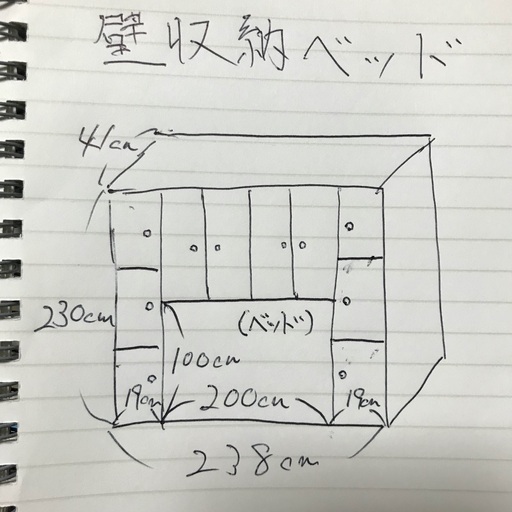 壁収納ベッド
41cm
230cm
(ベッド)
100cm
19cm
200cm
19cm
238cm